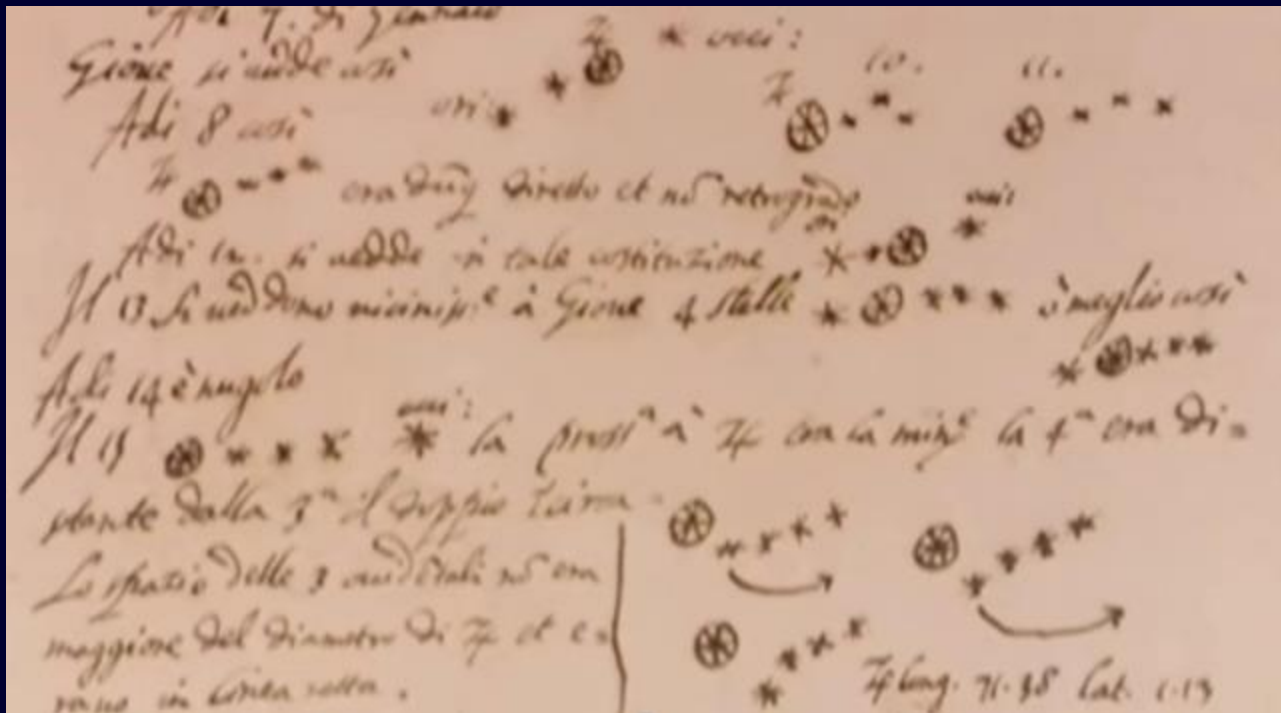 Adi 7. di Gennaio
Gioue si uede così
ori: * * ♃ * occi:
Adi 8 così
♃ 10. 11.
era dūq̃ diretto et nõ retrogrado
Adi 12. si uedde in tale costituzione ori * * * occi:
Il 13 si ueddono uicinissᵉ à Gioue 4 stelle * * * * ò meglio così
Adi 14 è nugolo
Il 15 * * * * occi: la prossᵃ à ♃ era la minᵉ la 4ᵃ era di=
stante dalla 3ᵃ il doppio circa
Lo spatio delle 3 occidẽtali nõ era
maggiore del diametro di ♃ et e=
rano in linea retta.
♃ long. 71.38 lat. 1.13